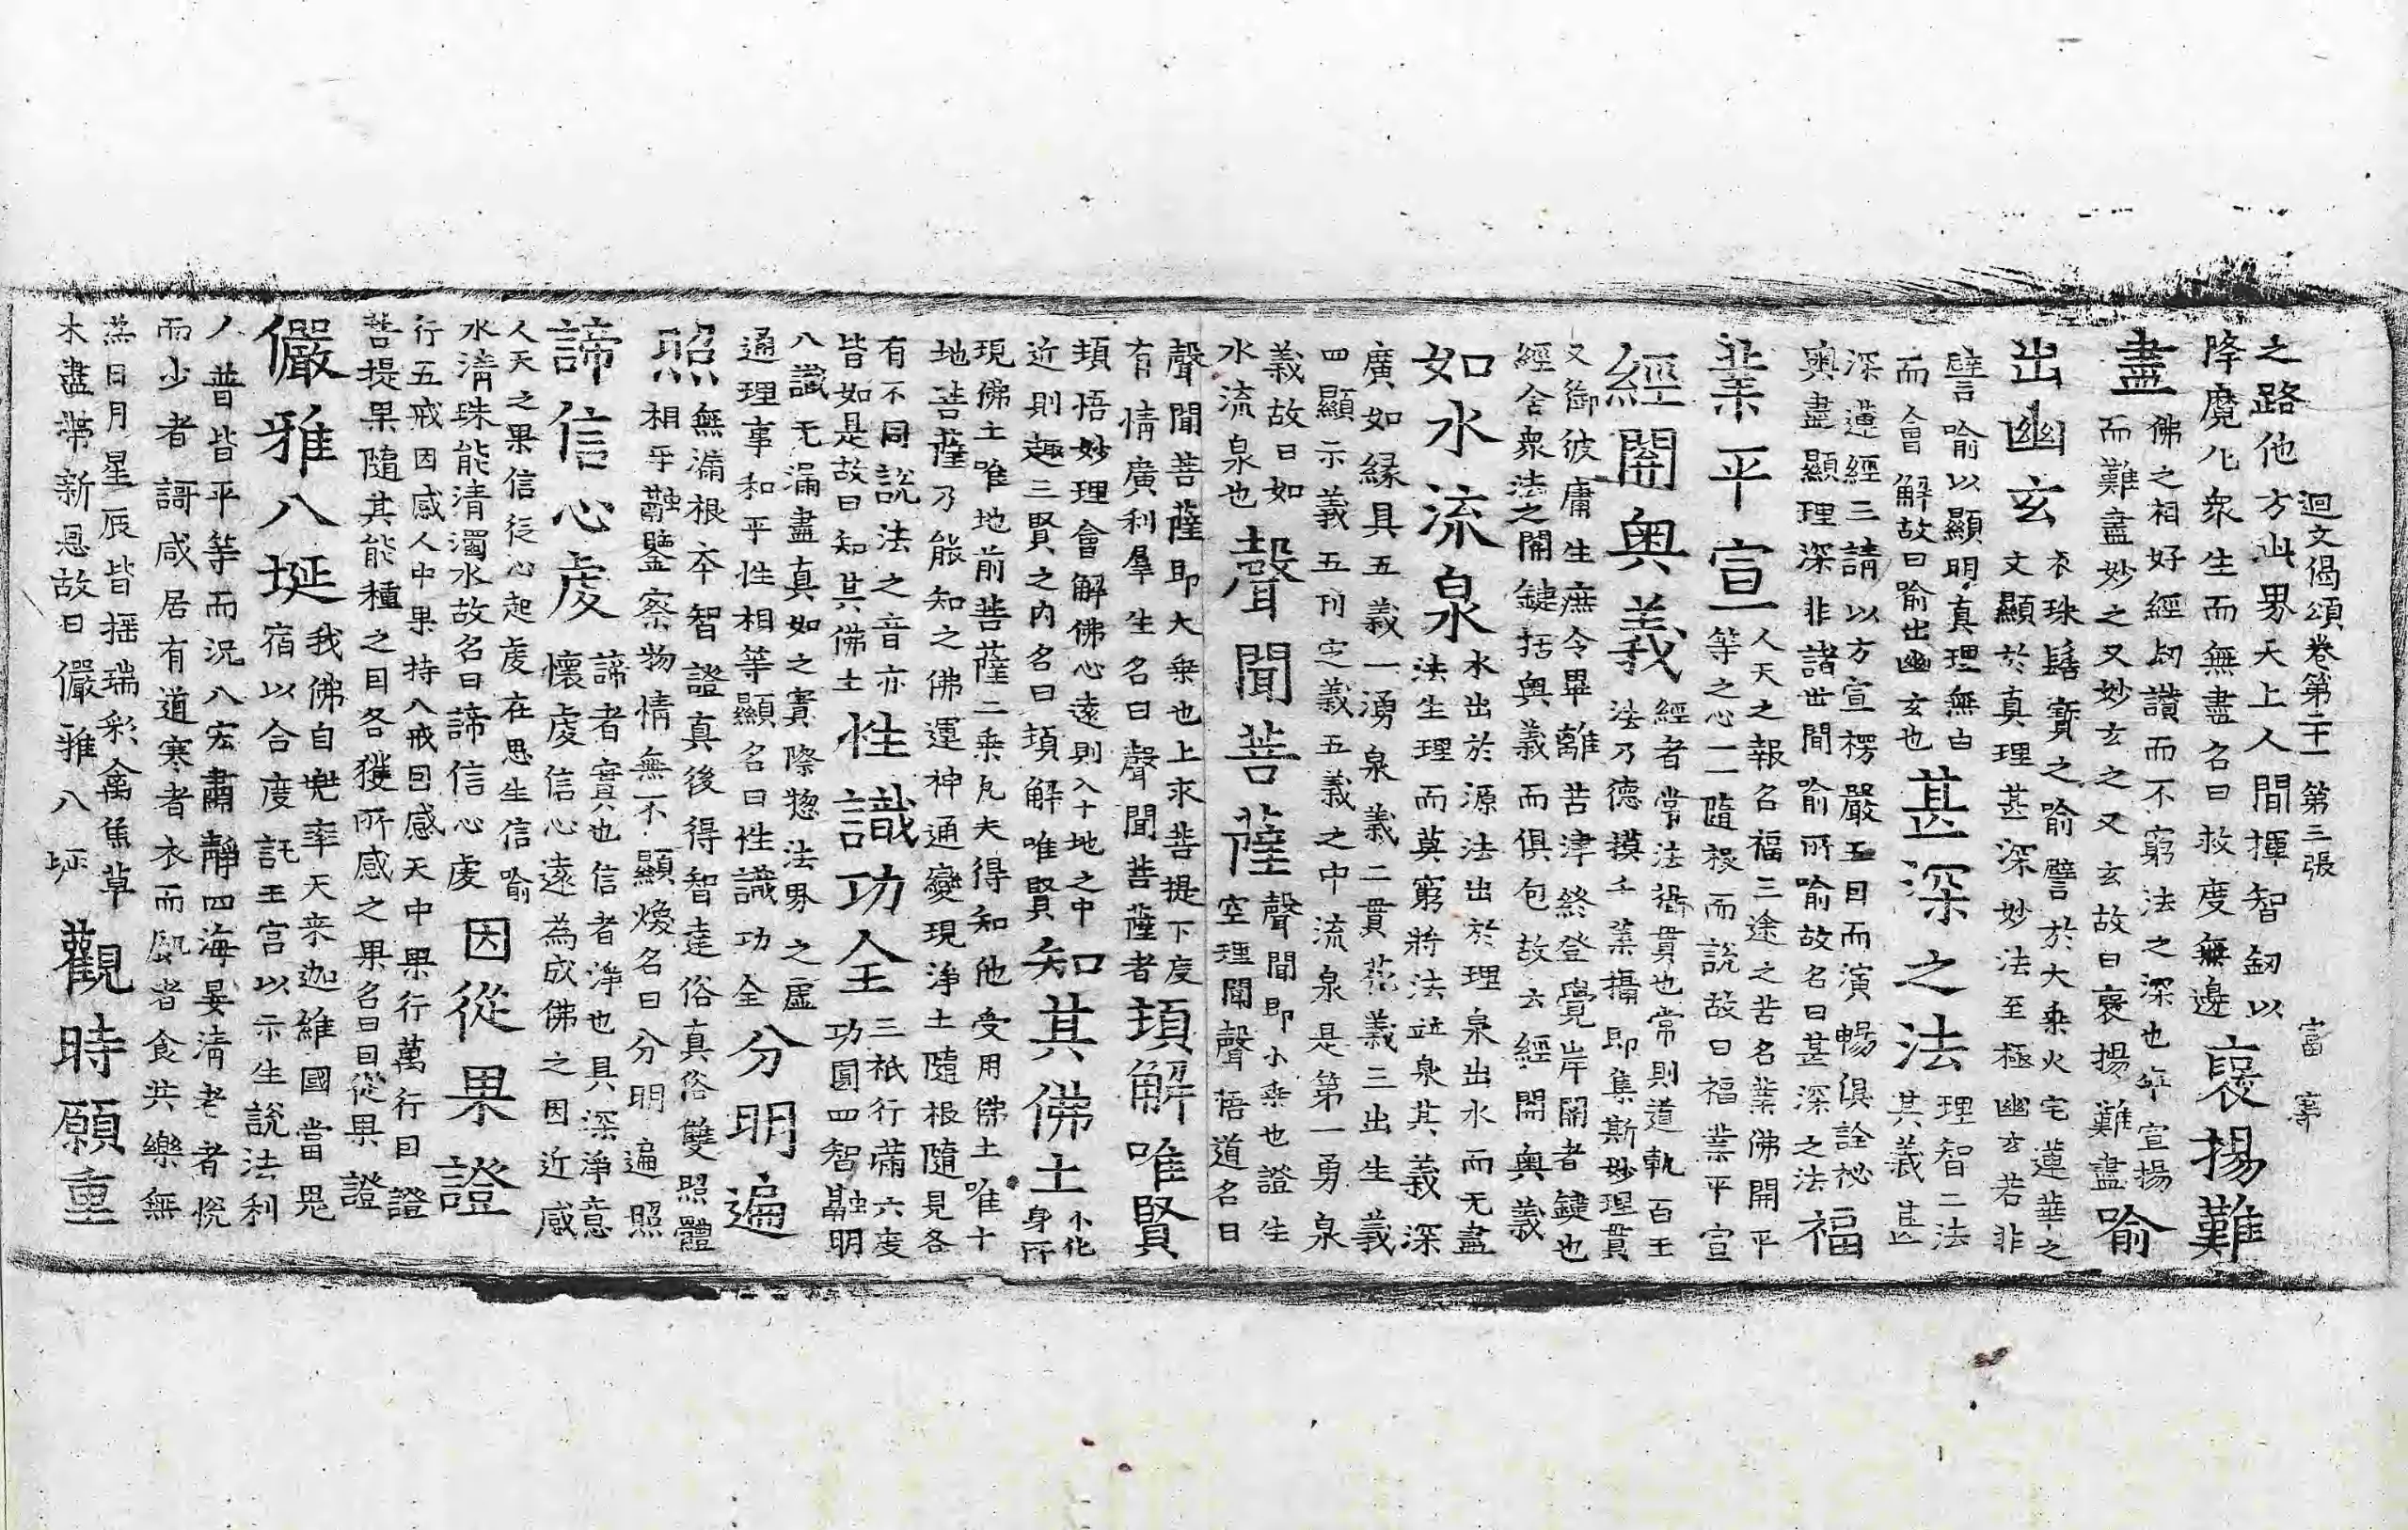 迴文偈頌卷第二十一 第三張 富 寧
之路他方此界天上人間揮智釰以
降魔化衆生而無盡名曰救度無邊 褒揚難
盡 佛之相好經劫讚而不窮法之深也宣揚
而難盡妙之又妙玄之又玄故曰褒揚難盡 喻
出幽玄 衣珠髻寶之喻譬於大乘火宅蓮華之
文顯於真理甚深妙法至極幽玄若非
譬喻以顯明真理無由
而會解故曰喻出幽玄也 甚深之法 理智二法
其義甚
深蓮經三請以方宣楞嚴五目而演暢俱詮祕
奧盡顯理深非諸世間喻所喻故名曰甚深之法 福
業平宣 人天之報名福三途之苦名業佛開平
等之心一一隨根而說故曰福業平宣
經開奧義 經者常法攝貫也常則道軌百王
法乃德摸千葉攝即集斯妙理貫
又御彼庸生庶令畢離苦津終登覺岸開者鍵也
經含衆法之關鍵括奧義而俱包故云經開奧義
如水流泉 水出於源法出於理泉出水而无盡
法生理而莫窮將法並泉其義深
廣如緣具五義一湧泉義二貫花義三出生義
四顯示義五刊定義五義之中流泉是第一勇泉
義故曰如
水流泉也 聲聞菩薩 聲聞即小乘也證生
空理聞聲悟道名曰
聲聞菩薩即大乘也上求菩提下度
有情廣利羣生名曰聲聞菩薩者 頓解唯賢
頓悟妙理會解佛心遠則入十地之中
近則趣三賢之內名曰頓解唯賢 知其佛土 小化
身所
現佛土唯地前菩薩二乘凡夫得知他受用佛土唯十
地菩薩乃能知之佛運神通變現淨土隨根隨見各
有不同說法之音亦
皆如是故曰知其佛土 性識功全 三祇行滿六度
功圓四智融明
八識无漏盡真如之實際惣法界之虛
通理事和平性相等顯名曰性識功全 分明遍
照 無漏根本智證真後得智達俗真俗雙照體
相平融鑒察物情無不顯煥名曰分明遍照
諦信心虔 諦者實也信者淨也具深淨意
懷虔信心遠為成佛之因近感
人天之果信從心起虔在思生信喻
水清珠能清濁水故名曰諦信心虔 因從果證
行五戒因感人中果持八戒因感天中果行萬行因證
菩提果隨其能種之因各獲所感之果名曰因從果證
儼雅八埏 我佛自兜率天来迦維國當兜
宿以合度託王宮以示生說法利
人普皆平等而況八宏肅靜四海晏清老者悅
而少者謌咸居有道寒者衣而飢者食共樂無
為日月星辰皆揺瑞彩禽魚草
木盡帶新恩故曰儼雅八埏 觀時願重